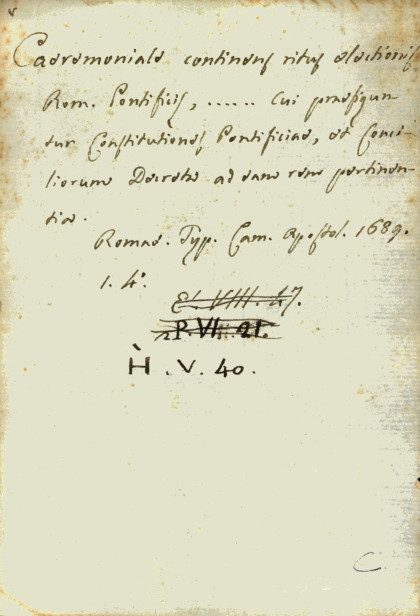 Caeremoniale continens ritus electionis
Rom. Pontificis, ...... cui praefigun-
tur Constitutiones Pontificiae, et Conci-
liorum Decreta ad eam rem pertinen-
tia.
Romae. Typ. Cam. Apostol. 1689.
1. 4°.
VIII 47.
P. VI. 21.
H. V. 40.
C.